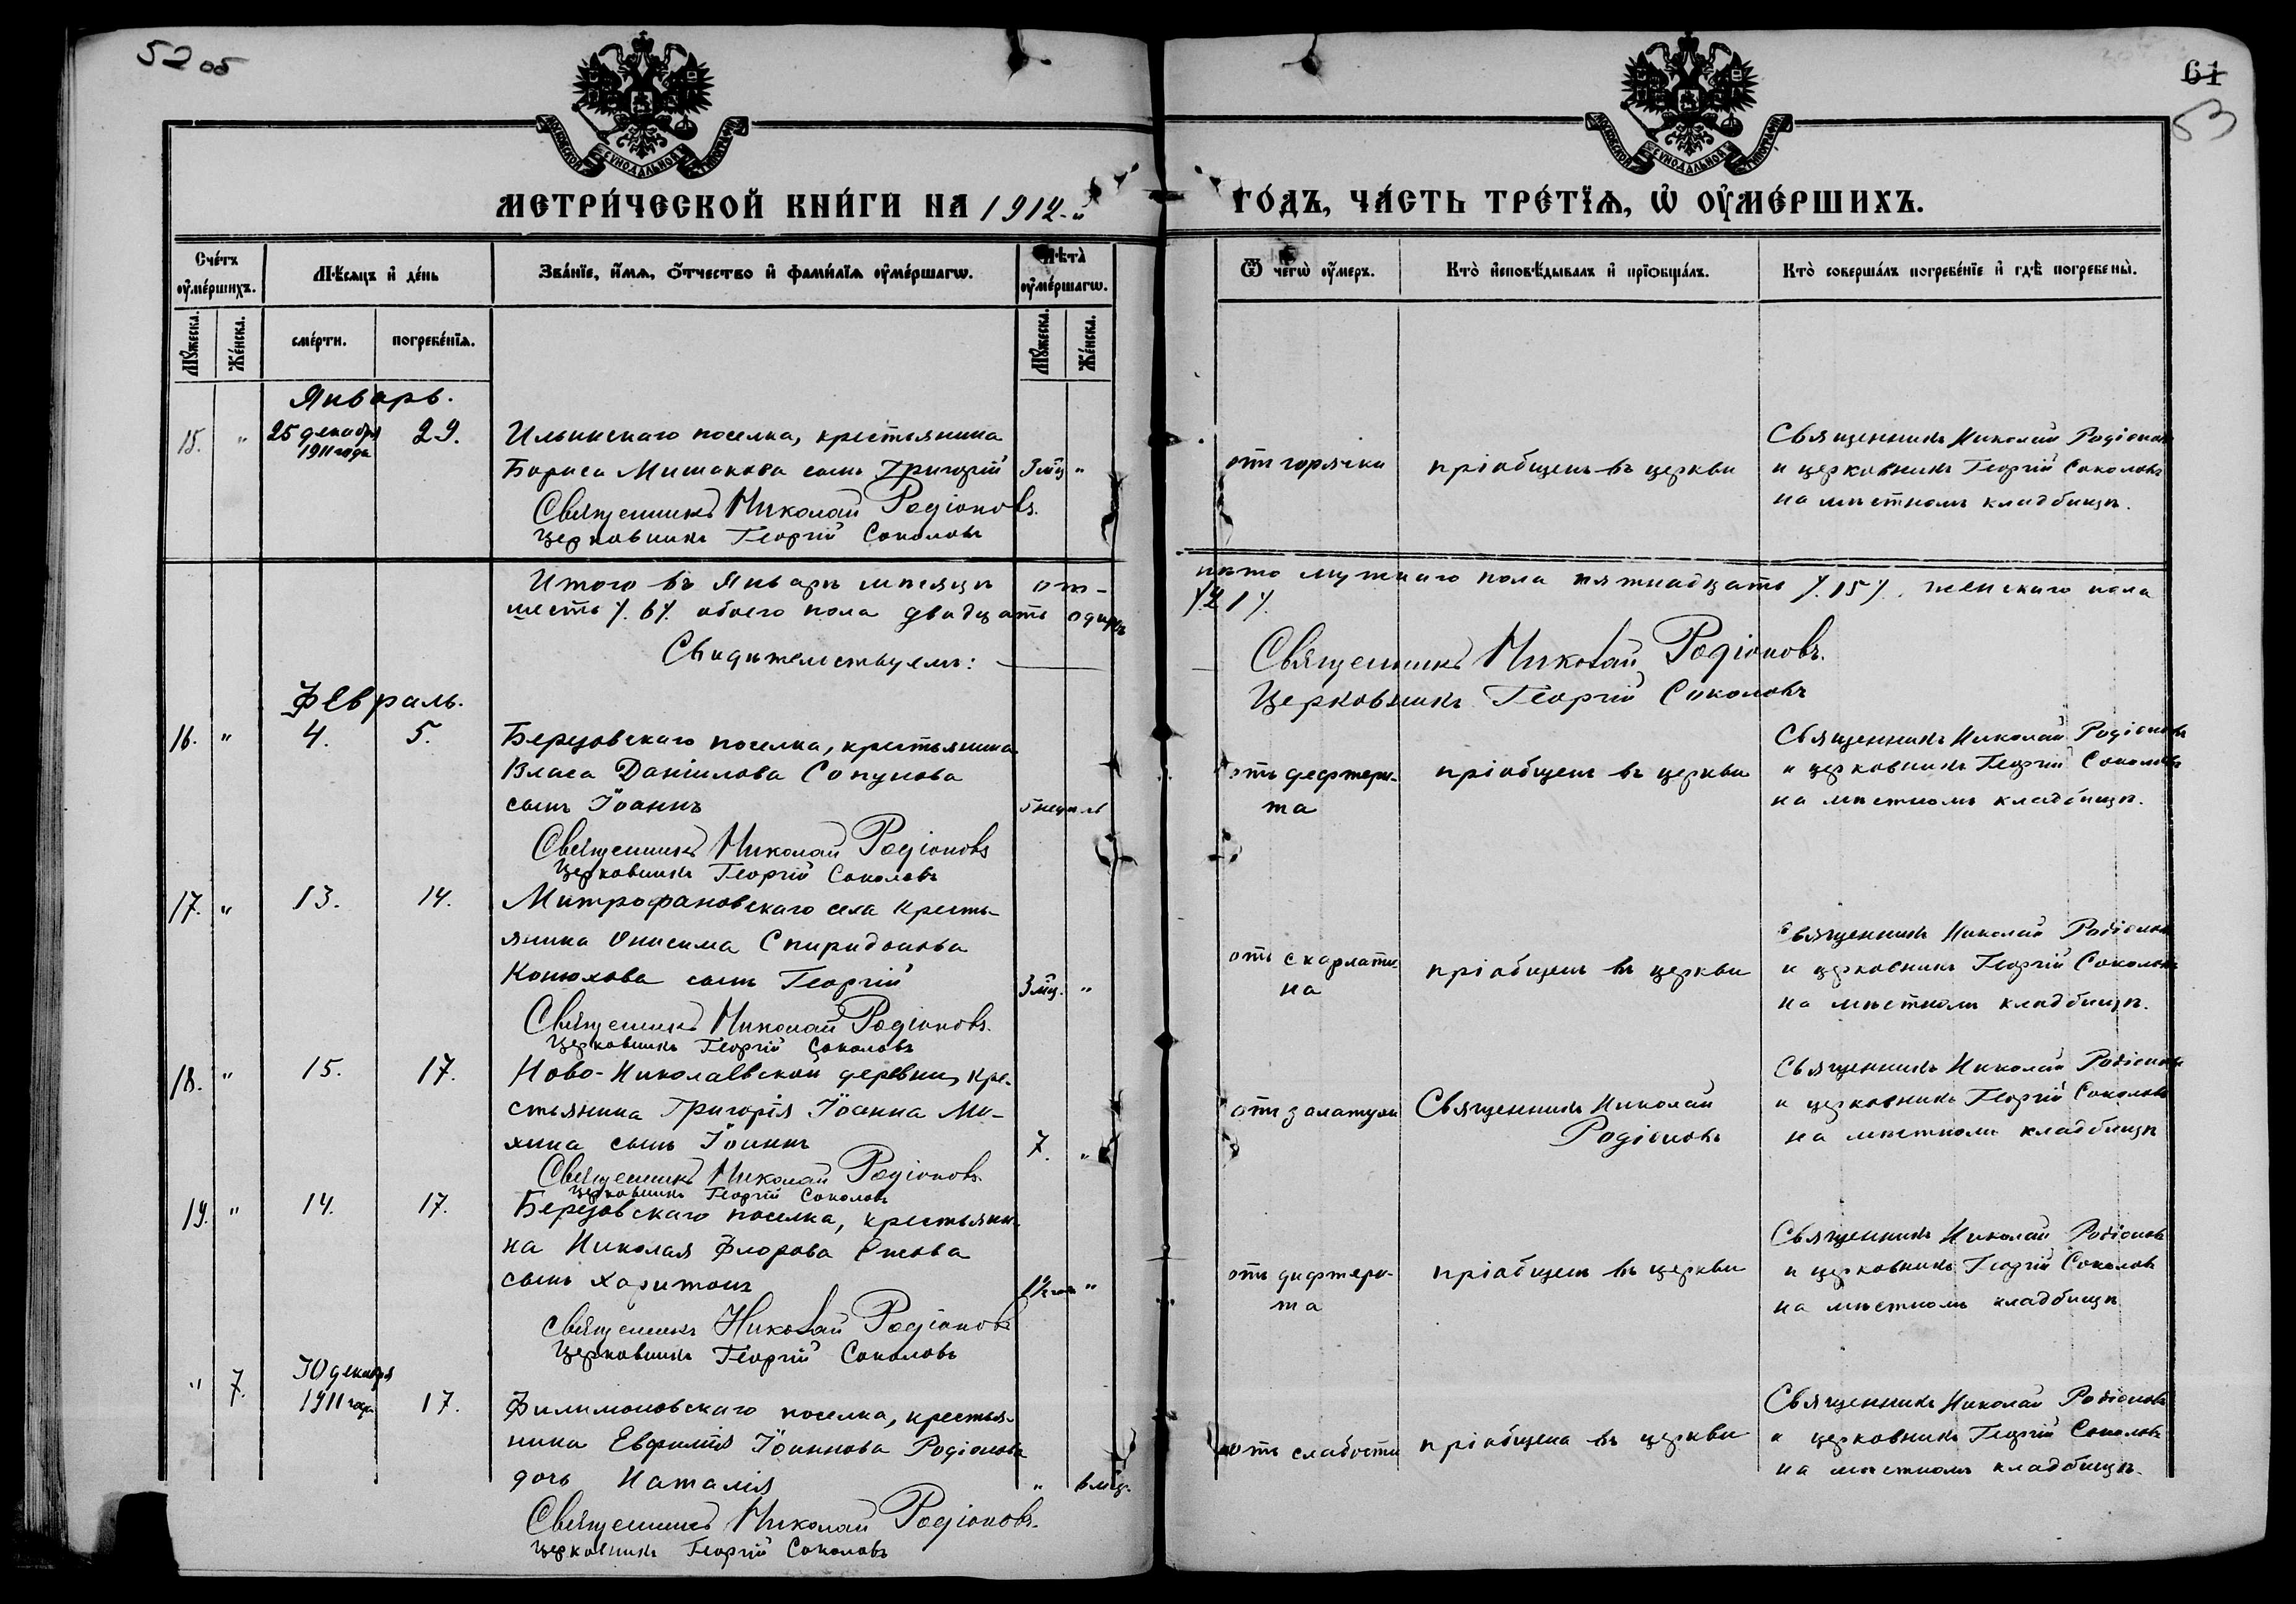 52 об
61
53
МОСКОВСКОЙ СѴНОДАЛЬНОЙ ТИПОГРАФІИ
МОСКОВСКОЙ СѴНОДАЛЬНОЙ ТИПОГРАФІИ
МЕТРИ́ЧЕСКОЙ КНИ́ГИ НА 1912-й
ГО́ДЪ, ЧА́СТЬ ТРЕ́ТЇѦ, Ѡ҆ ОУ҆МЕ́РШИХЪ.
Сче́тъ оу҆ме́ршихъ.
Мѣ́сяцъ и҆ де́нь
Зва́нїе, и҆́мѧ, ѻ҆́тчество и҆ фами́лїѧ оу҆ме́ршагѡ.
Лѣ́та оу҆ме́ршагѡ.
Ѿ чегѡ̀ оу҆́меръ.
Кто̀ и҆сповѣ́дывалъ и҆ прїѡбща́лъ.
Кто̀ соверша́лъ погребе́нїе и҆ гдѣ̀ погребены̀.
Мꙋ́жеска.
Же́нска.
сме́рти.
погребе́нїѧ.
Мꙋ́жеска.
Же́нска.
Январь.
15. " 25 декабря 1911 года 29.
Ильинскаго поселка, крестьянина
Бориса Мишакова сынъ Григорій 3 мц "
Священникъ Николай Родіоновъ.
Церковникъ Георгій Соколовъ
отъ горячки
пріобщенъ въ церкви
Священникъ Николай Родіоновъ
и церковникъ Георгій Соколовъ
на мѣстномъ кладбищѣ.
Итого въ Январѣ мѣсяцѣ от-
шесть /.6/. обоего пола двадцать одинъ
Свидѣтельствуемъ:
пѣто мужскаго пола пятнадцать /.15/. женскаго пола
/.21/.
Священникъ Николай Родіоновъ.
Церковникъ Георгій Соколовъ
Февраль.
16. " 4. 5.
Березовскаго поселка, крестьянина
Власа Даніилова Сопунова
сынъ Іоаннъ 5 недѣль
Священникъ Николай Родіоновъ
Церковникъ Георгій Соколовъ
отъ дефтери-
та
пріобщенъ въ церкви
Священникъ Николай Родіоновъ
и церковникъ Георгій Соколовъ
на мѣстномъ кладбищѣ.
17. " 13. 14.
Митрофановскаго села кресть-
янина Онисима Спиридонова
Конюхова сынъ Георгій 3 мц. "
Священникъ Николай Родіоновъ.
Церковникъ Георгій Соколовъ
отъ скарлати-
на
пріобщенъ въ церкви
Священникъ Николай Родіоновъ
и церковникъ Георгій Соколовъ
на мѣстномъ кладбищѣ.
18. " 15. 17.
Ново-Николаевской деревни, кре-
стьянина Григорія Іоанна Ми-
хина сынъ Іоаннъ 7. "
Священникъ Николай Родіоновъ.
Церковникъ Георгій Соколовъ
отъ золотухи
Священникъ Николай
Родіоновъ
Священникъ Николай Родіоновъ
и церковникъ Георгій Соколовъ
на мѣстномъ кладбищѣ
19. " 14. 17.
Березовскаго поселка, крестьяни-
на Николая Флорова
сынъ Харитонъ 1½ "
Священникъ Николай Родіоновъ
Церковникъ Георгій Соколовъ
отъ дифтери-
та
пріобщенъ въ церкви
Священникъ Николай Родіоновъ
и церковникъ Георгій Соколовъ
на мѣстномъ кладбищѣ
" 7. 30 декабря 1911 года 17.
Филимоновскаго поселка, крестья-
нина Евфимія Іоаннова Родіонова
дочь Наталія " 6 мц.
Священникъ Николай Родіоновъ.
Церковникъ Георгій Соколовъ
отъ слабости
пріобщена въ церкви
Священникъ Николай Родіоновъ
и церковникъ Георгій Соколовъ
на мѣстномъ кладбищѣ.